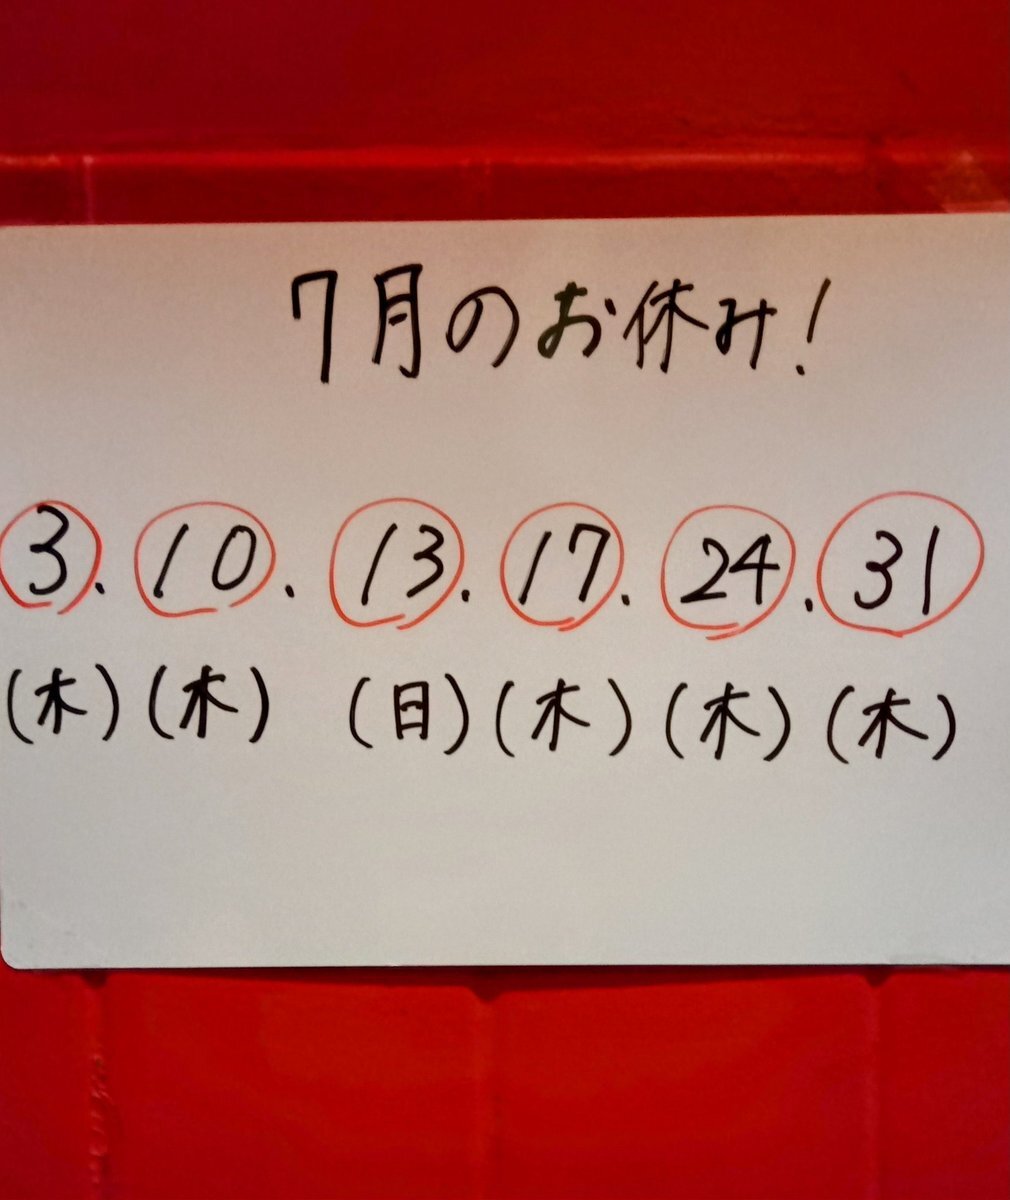 7月のお休み!
3.10.13.17.24.31
(木)(木)(日)(木)(木)(木)